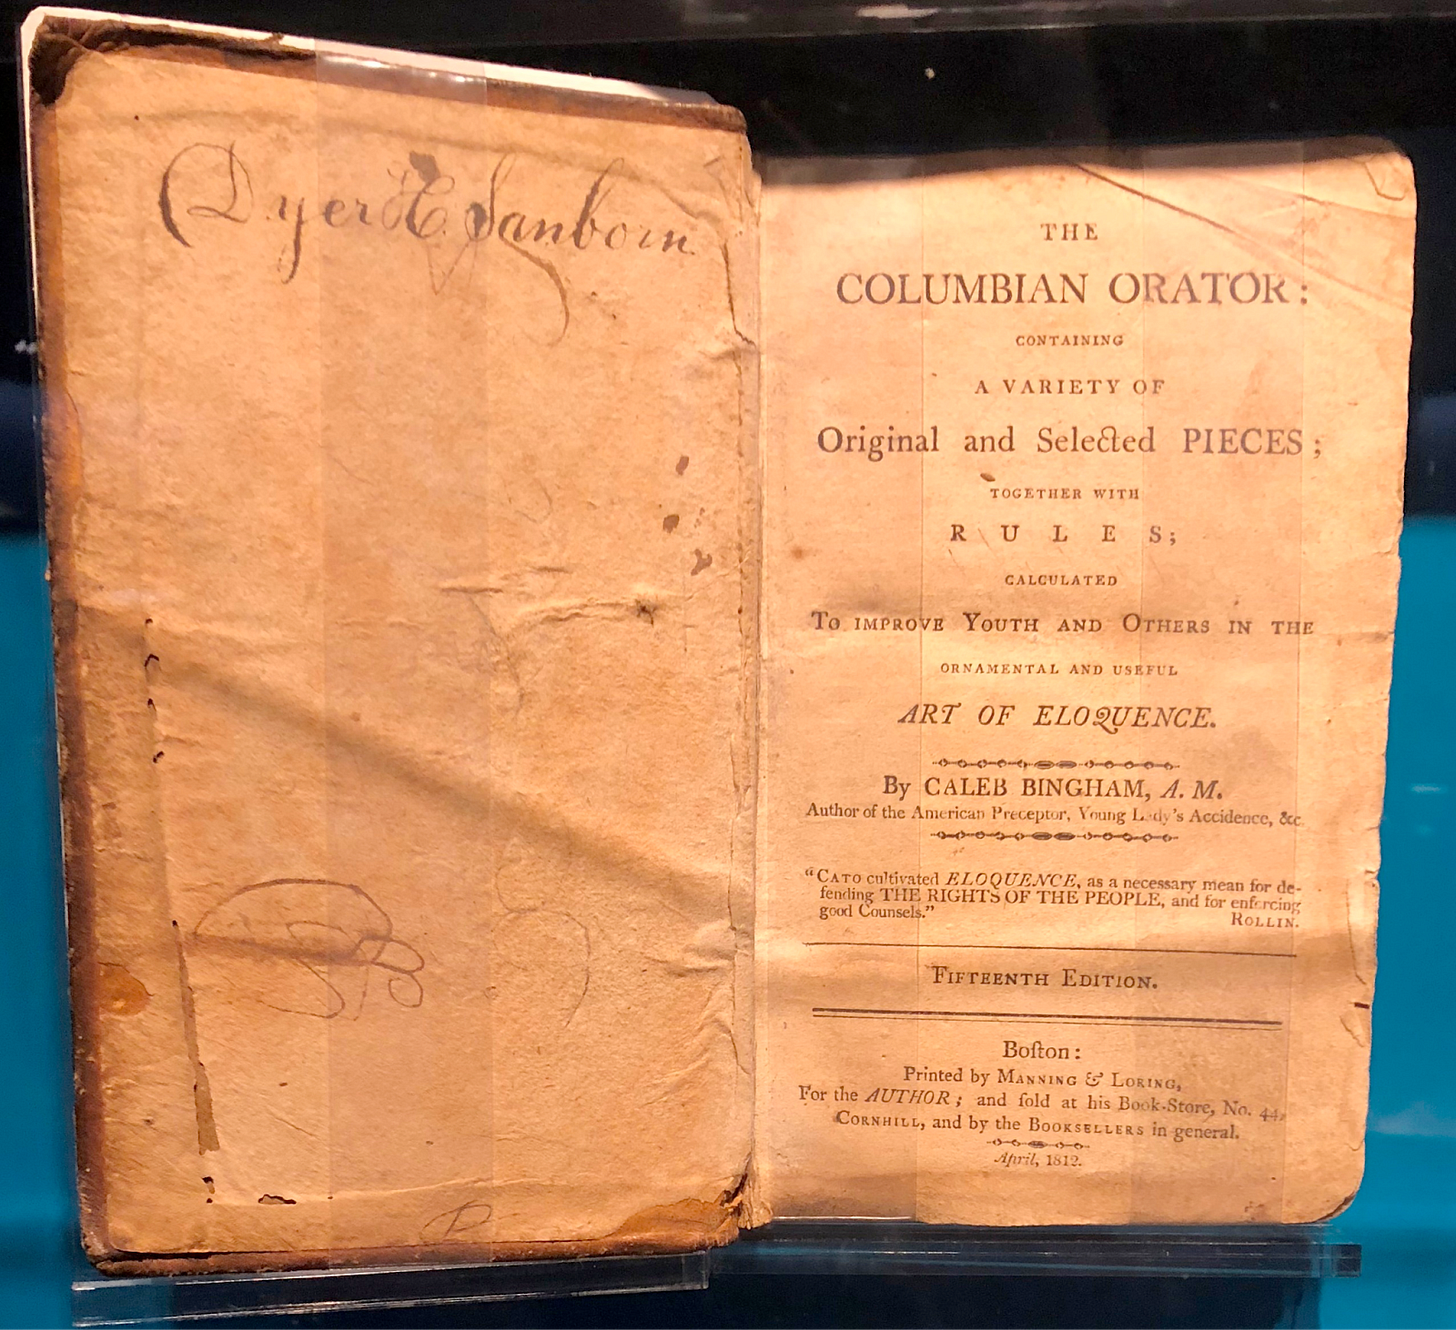 Dyer H. Sanborn
THE
COLUMBIAN ORATOR:
CONTAINING
A VARIETY OF
Original and Selected PIECES;
TOGETHER WITH
RULES;
CALCULATED
TO IMPROVE YOUTH AND OTHERS IN THE
ORNAMENTAL AND USEFUL
ART OF ELOQUENCE.
By CALEB BINGHAM, A. M.
Author of the American Preceptor, Young Lady's Accidence, &c
"CATO cultivated ELOQUENCE, as a necessary mean for de-
fending THE RIGHTS OF THE PEOPLE, and for enforcing
good Counsels."
ROLLIN.
FIFTEENTH EDITION.
Boſton:
Printed by MANNING & LORING,
For the AUTHOR; and ſold at his Book-Store, No. 44,
CORNHILL, and by the BOOKSELLERS in general.
April, 1812.